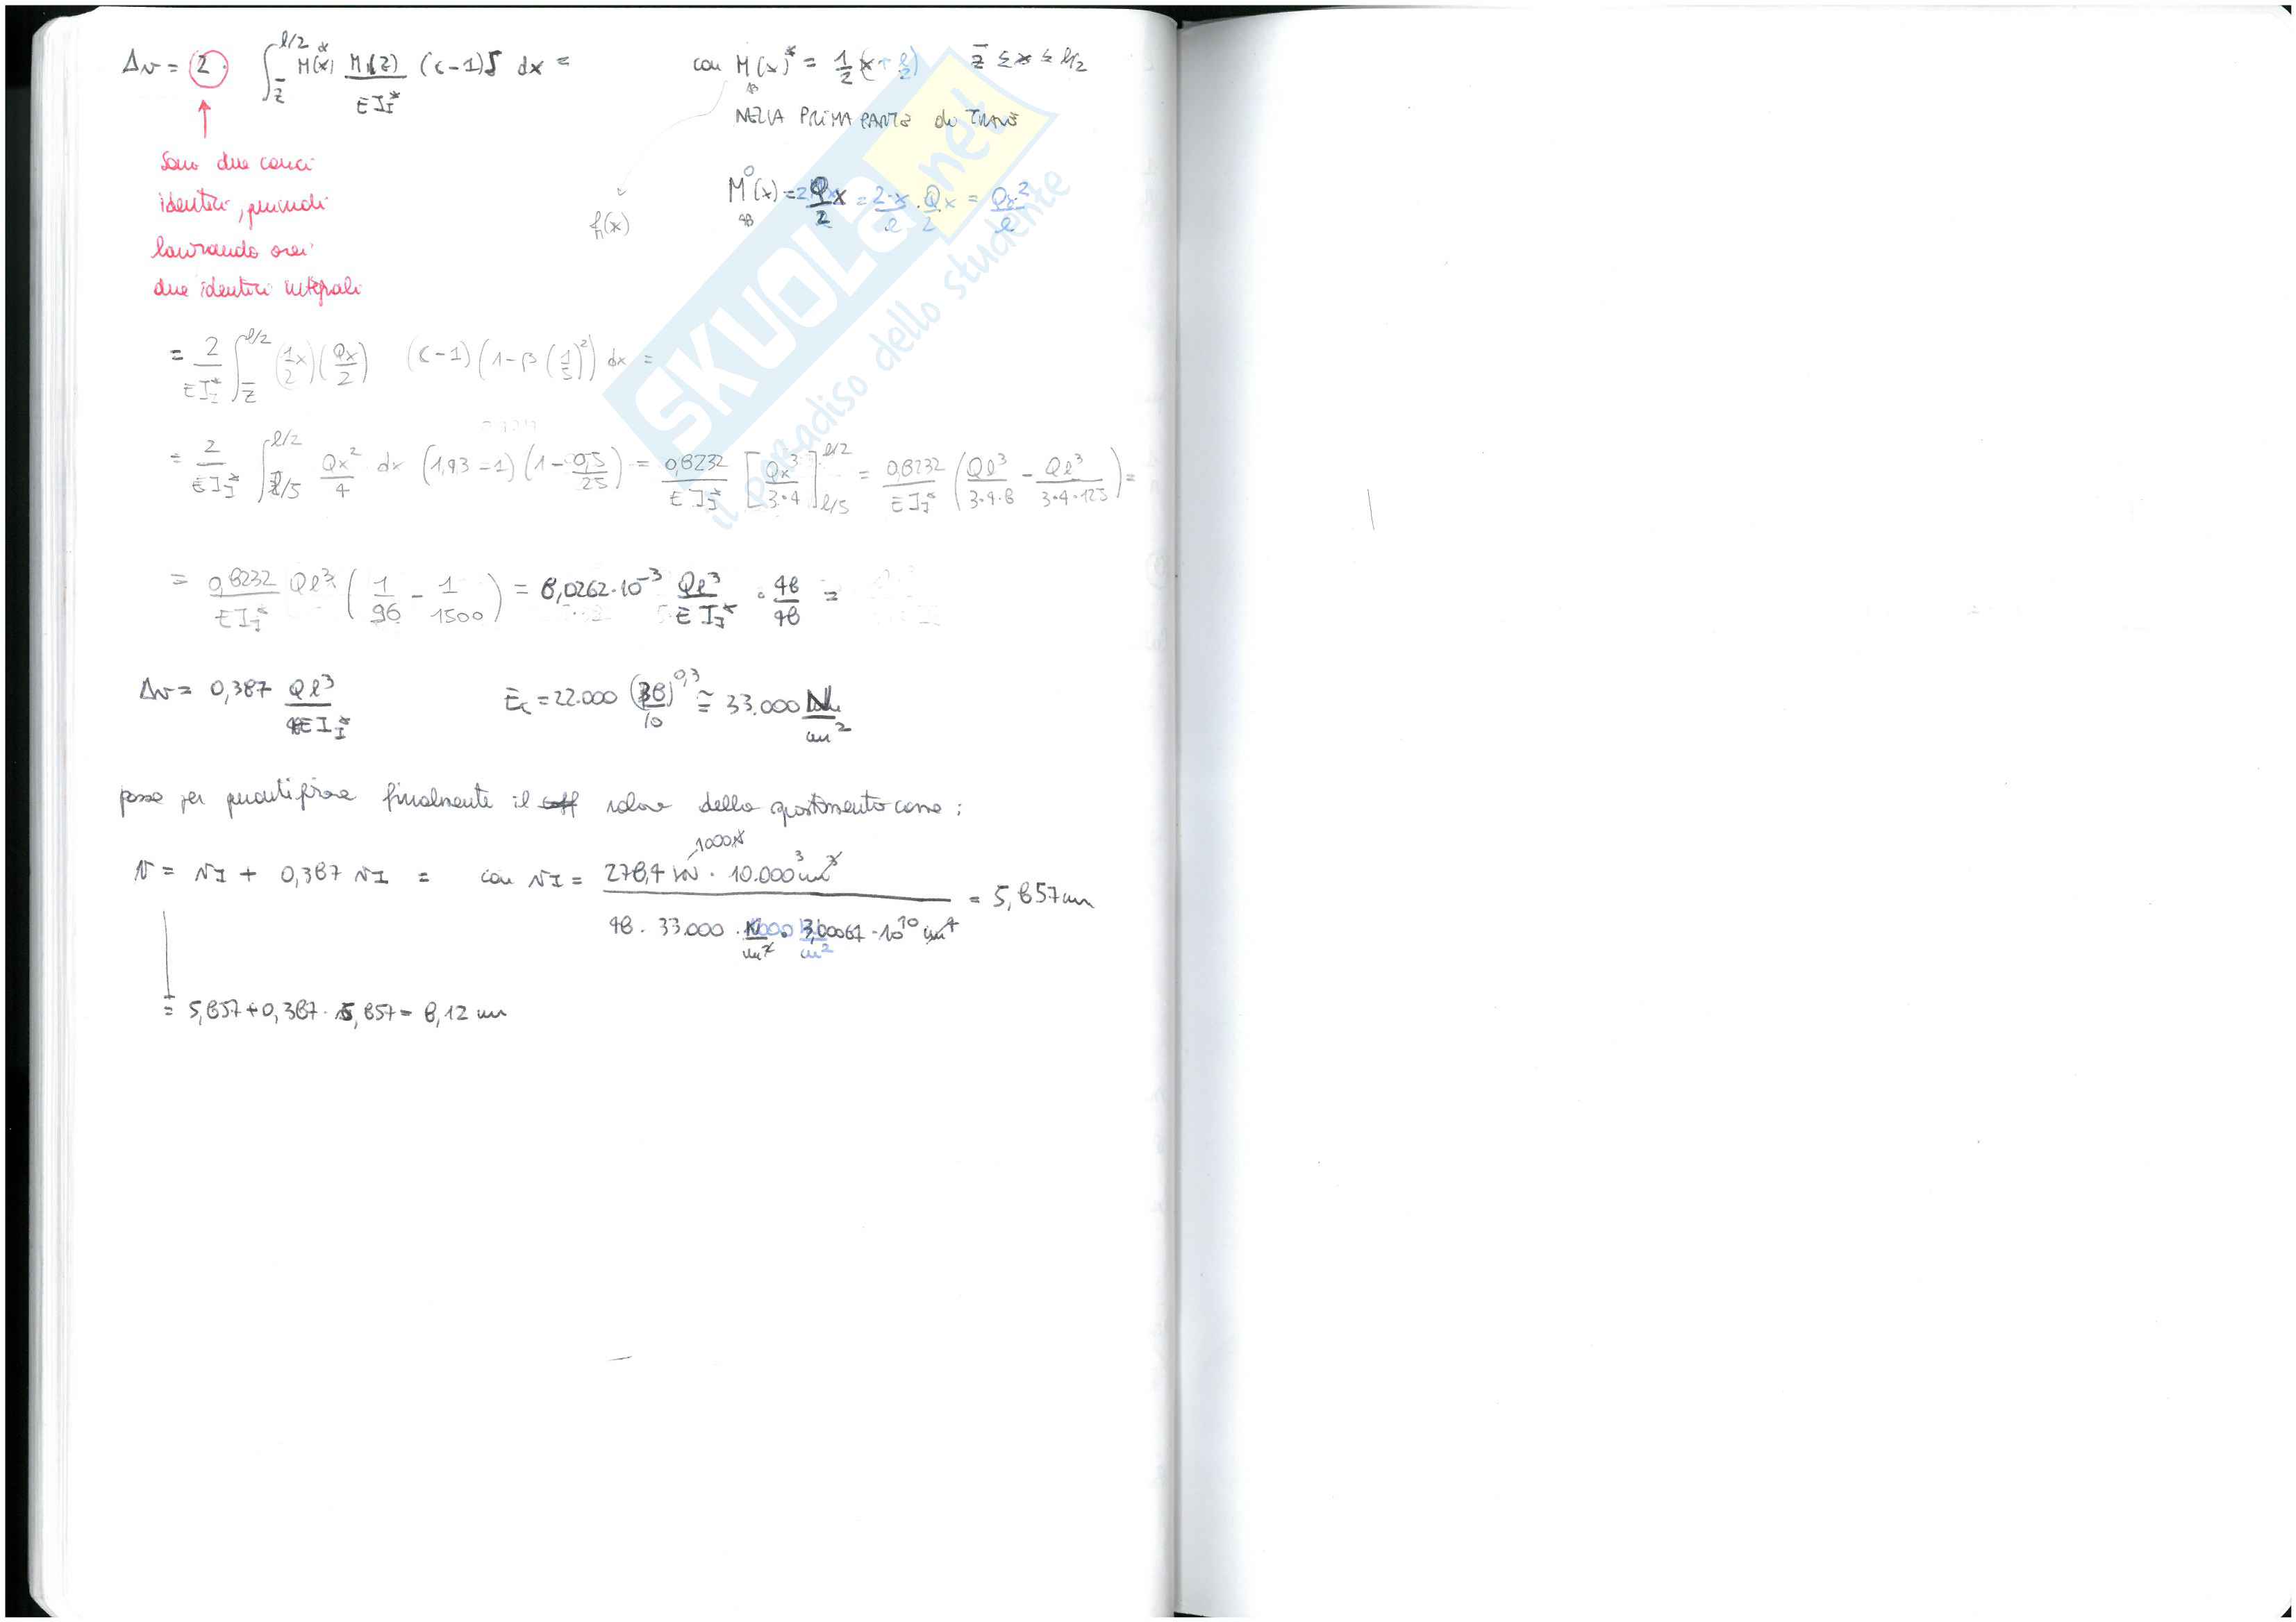 Δv = 2 · ∫_z̄^{l/2} M(x)* M_I(z)/(E I_I*) (c-1) ζ dx =
con M(x)* = 1/2 (x + l/2)   z̄ ≤ x ≤ l/2
AB
NELLA PRIMA PARTE di TRAVE
Sono due conci
identici, quindi
lavorando sui
due identici integrali
M°(x) = Q/2 x = 2·x/l · Q/2 x = Qx²/l
AB
f(x)
= 2/(E I_I*) ∫_z̄^{l/2} (1/2 x)(Qx/2) (c-1)(1-β(1/5)²) dx =
= 2/(E I_I*) ∫_{l/5}^{l/2} Qx²/4 dx (1,93-1)(1-0,5/25) = 0,8232/(E I_I*) [Qx³/3·4]_{l/5}^{l/2} = 0,8232/(E I_I*) (Ql³/3·4·8 - Ql³/3·4·125) =
= 0,8232/(E I_I*) Ql³ (1/96 - 1/1500) = 8,0262·10⁻³ Ql³/(E I_I*) · 48/48 =
Δv = 0,387 Ql³/(48 E I_I*)   E_c = 22.000 (38/10)^{0,3} ≅ 33.000 N/mm²
posso per quantificare finalmente il valore dello spostamento come:
v = v_I + 0,387 v_I = con v_I = 278,4 kN · 10.000³ mm³ / (48 · 33.000 · N/mm² · 3,00067 · 10¹⁰ mm⁴) = 5,857 mm
1000N
= 5,857 + 0,387 · 5,857 = 8,12 mm
SKUOLA.net
il paradiso dello studente